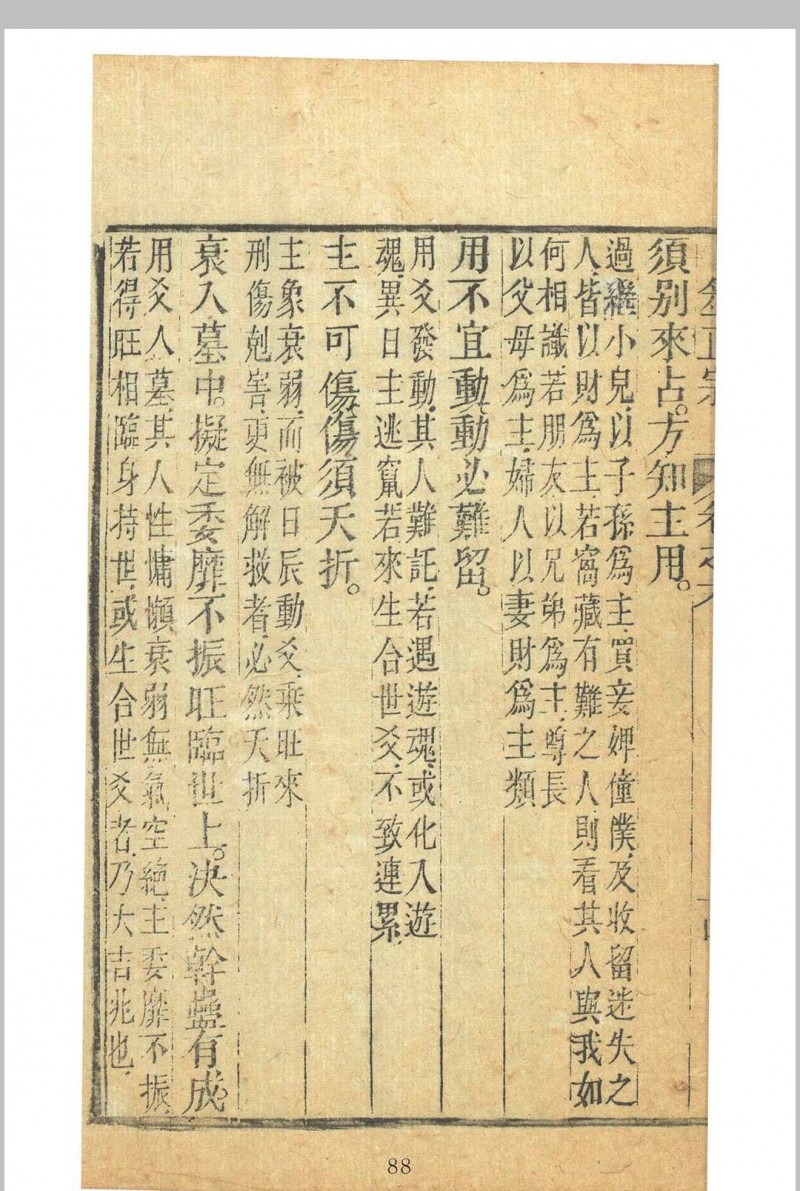 須别來占。方知主用。
過繼小兒、以子孫爲主、買妾婢僮僕、及收留迷失之
人、皆以財爲主、若窩藏有難之人、則看其人與我如
何相識、若朋友以兄弟爲主、尊長
以父母爲主、婦人以妻財爲主類
用不宜動、動必難留。
用爻發動、其人難託、若遇遊魂、或化入遊
魂、異日主逃竄、若來生合世爻、不致連累、
主不可傷、傷須夭折。
主象衰弱、而被日辰動爻、乘旺來
刑傷剋害、更無解救者、必然夭折
衰入墓中。擬定委靡不振、旺臨世上。決然幹蠱有成。
用爻入墓、其人性慵懶、衰弱無氣空絕、主委靡不振、
若得旺相臨身持世、或生合世爻者、乃大吉兆也、
88